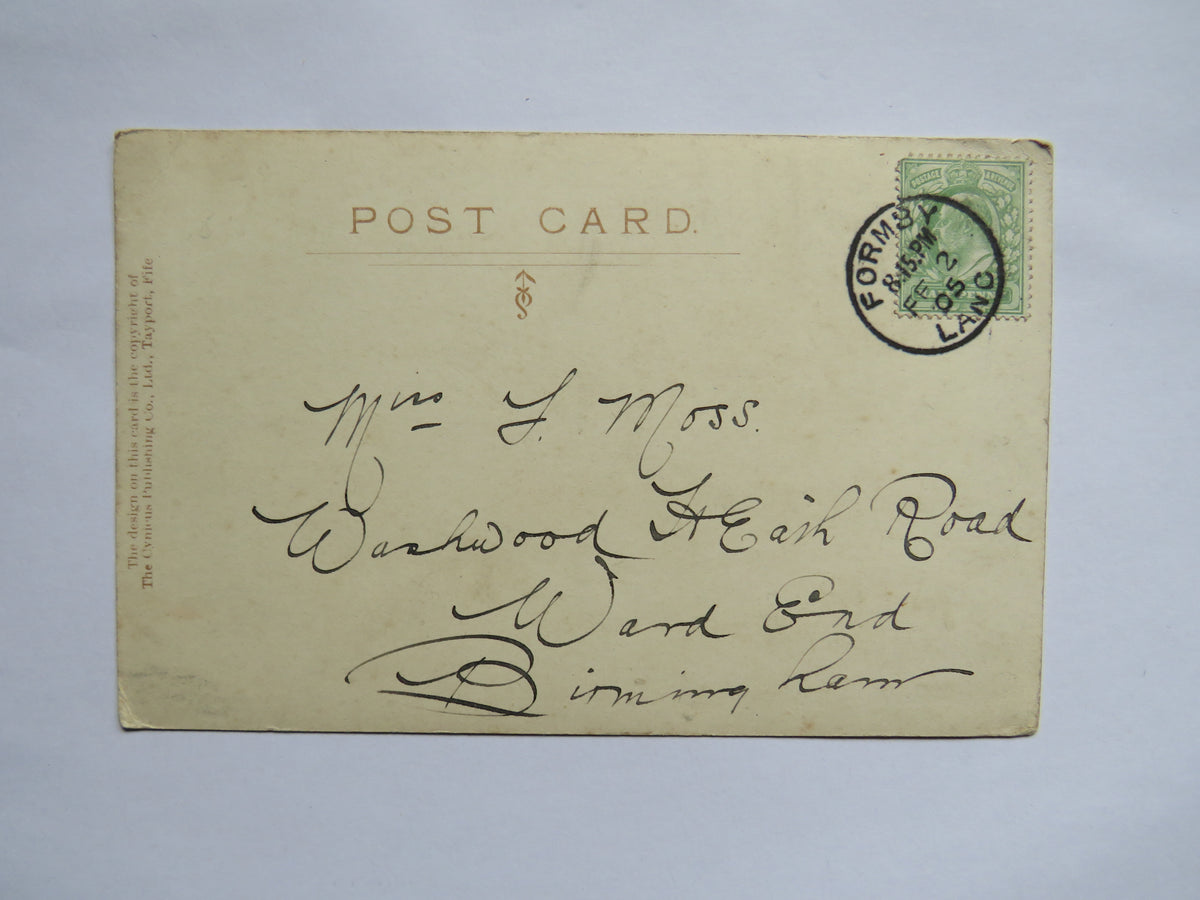 POST CARD.
The design on this card is the copyright of
The Cynicus Publishing Co., Ltd., Tayport, Fife
POSTAGE REVENUE
FORMBY
8.15.PM
FE 2
05
LANC
Miss F. Moss.
Washwood HEath Road
Ward End
Birmingham